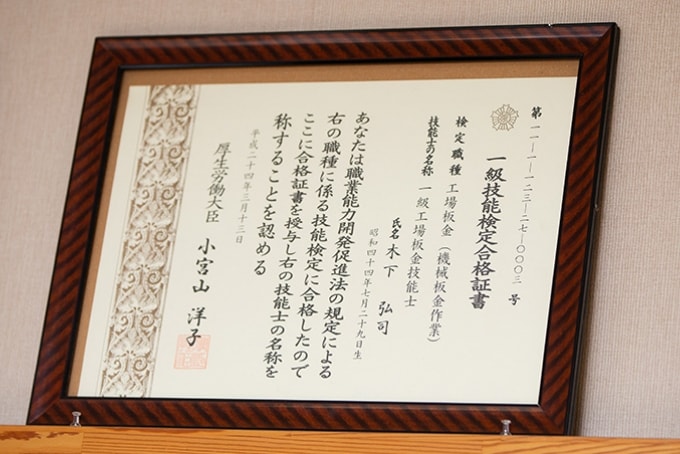 第一一-一-一二三-二七-〇〇〇三号
一級技能検定合格証書
検定職種 工場板金（機械板金作業）
技能士の名称 一級工場板金技能士
氏名 木下 弘司
昭和四十四年七月二十九日生
あなたは職業能力開発促進法の規定による
右の職種に係る技能検定に合格したので
ここに合格証書を授与し右の技能士の名称を
称することを認める
平成二十四年三月十三日
厚生労働大臣 小宮山 洋子